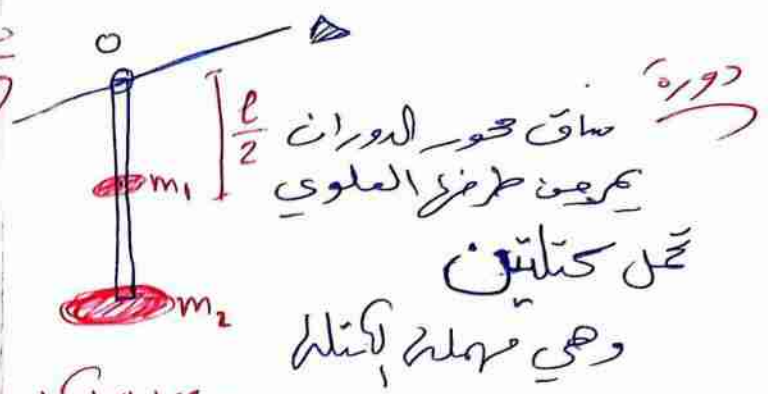 دورة
O
ساق محور الدوران
يمر من طرفها العلوي
تحمل كتلتين
وهي مهملة الكتلة
ℓ/2
m₁
m₂